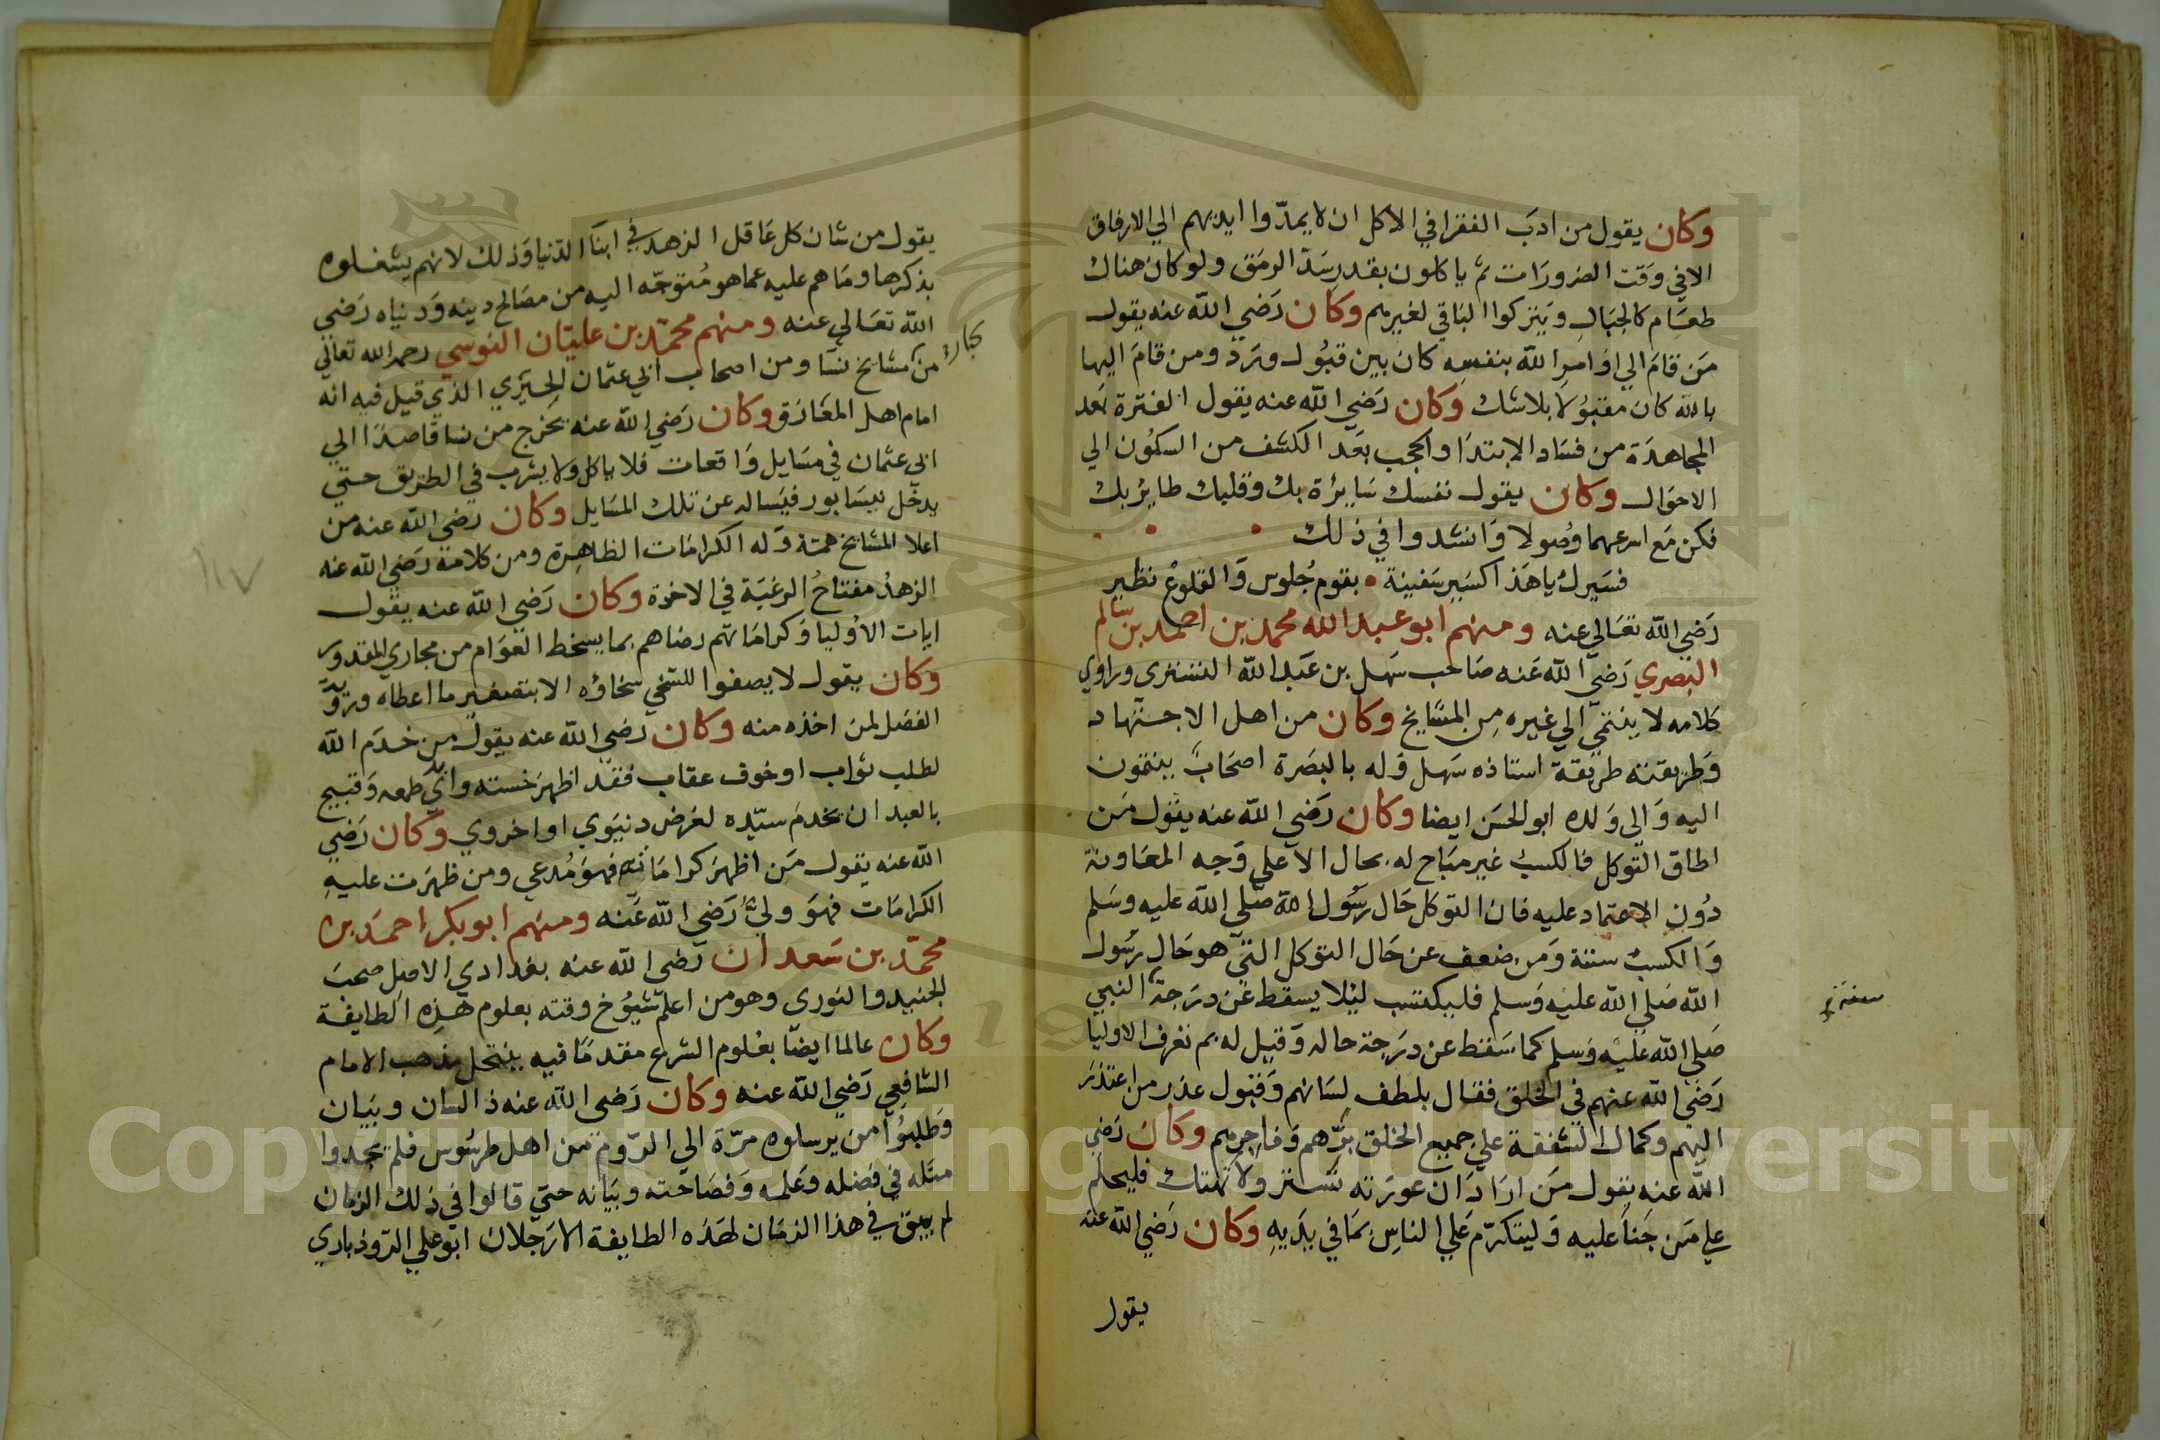 وكان يقول من ادب الفقرا في الاكل ان لا يمدّوا ايديهم الي الارفاق
الا في وقت الضرورات ثم ياكلون بقدر سدّ الرمق ولو كان هناك
طعام كالجبال ويتركوا الباقي لغيرهم وكان رضي الله عنه يقول
من قام الي اوامر الله بنفسه كان بين قبول ورد ومن قام اليها
بالله كان مقبولا بلا شك وكان رضي الله عنه يقول الفترة بعد
المجاهدة من فساد الابتدا والحجب بعد الكشف من السكون الي
الاحوال وكان يقول نفسك سايرة بك وقلبك طاير بك
فكن مع اسرعهما وصولا وانشدوا في ذلك
فسيرك يا هذا كسير سفينة • بقوم جلوس والقلوع نظير
رضي الله تعالي عنه ومنهم ابو عبد الله محمد بن احمد بن سالم
البصري رضي الله عنه صاحب سهل بن عبد الله التستري وراوي
كلامه لا ينتمي الي غيره من المشايخ وكان من اهل الاجتهاد
وطريقته طريقة استاذه سهل وله بالبصرة اصحاب ينتمون
اليه والي ولده ابو الحسن ايضا وكان رضي الله عنه يقول من
اطاق التوكل فالكسب غير مباح له بحال الا علي وجه المعاونة
دون الاعتماد عليه فان التوكل حال رسول الله صلي الله عليه وسلم
والكسب سنته ومن ضعف عن حال التوكل التي هو حال رسول
الله صلي الله عليه وسلم فليكتسب ليلا يسقط عن درجة النبي
صلي الله عليه وسلم كما سقط عن درجة حاله وقيل له بم تعرف الاوليا
رضي الله عنهم في الخلق فقال بلطف لسانهم وقبول عذر من اعتذر
اليهم وكمال الشفقة علي جميع الخلق برّهم وفاجرهم وكان رضي
الله عنه يقول من اراد ان عورته تستر ولا تهتك فليحلم
علي من جنا عليه وليتكرّم علي الناس بما في يديه وكان رضي الله عنه
يقول
يقول من شان كل عاقل الزهد في ابنا الدنيا وذلك لانهم يشغلوه
بذكرها وما هم عليه عما هو متوجّه اليه من مصالح دينه ودنياه رضي
الله تعالي عنه ومنهم محمّد بن عليّان النوسي رحمه الله تعالي
كبار
من مشايخ نسا ومن اصحاب ابي عثمان الحيري الذي قيل فيه انه
امام اهل المعارف وكان رضي الله عنه يخرج من نسا قاصدا الي
ابي عثمان في مسايل واقعات فلا ياكل ولا يشرب في الطريق حتي
يدخل نيسابور فيساله عن تلك المسايل وكان رضي الله عنه من
اعلا المشايخ همة وله الكرامات الظاهرة ومن كلامه رضي الله عنه
الزهد مفتاح الرغبة في الاخرة وكان رضي الله عنه يقول
ايات الاوليا وكراماتهم رضاهم بما يسخط العوام من مجاري المقدور
وكان يقول لا يصفوا للسخي سخاؤه الا بتصغير ما اعطاه ورؤية
الفضل لمن اخذه منه وكان رضي الله عنه يقول من خدم الله
لطلب ثواب او خوف عقاب فقد اظهر خسته وابدي طمعه وقبيح
بالعبد ان يخدم سيّده لغرض دنيوي او اخروي وكان رضي
الله عنه يقول من اظهر كراماته فهو مُدعي ومن ظهرت عليه
الكرامات فهو وليّ رضي الله عنه ومنهم ابو بكر احمد بن
محمّد بن سعدان رضي الله عنه بغدادي الاصل صحب
الجنيد والنوري وهو من اعلم شيوخ وقته بعلوم هذه الطايفة
وكان عالما ايضا بعلوم الشرع مقدما فيه ينتحل مذهب الامام
الشافعي رضي الله عنه وكان رضي الله عنه ذا لسان وبيان
وطلبوا من يرسلوه مرّة الي الرّوم من اهل طرسوس فلم يجدوا
مثله في فضله وعلمه وفصاحته وبيانه حتي قالوا في ذلك الزمان
لم يبق في هذا الزمان لهذه الطايفة الا رجلان ابو علي الرّوذباري
Copyright © King Saud University